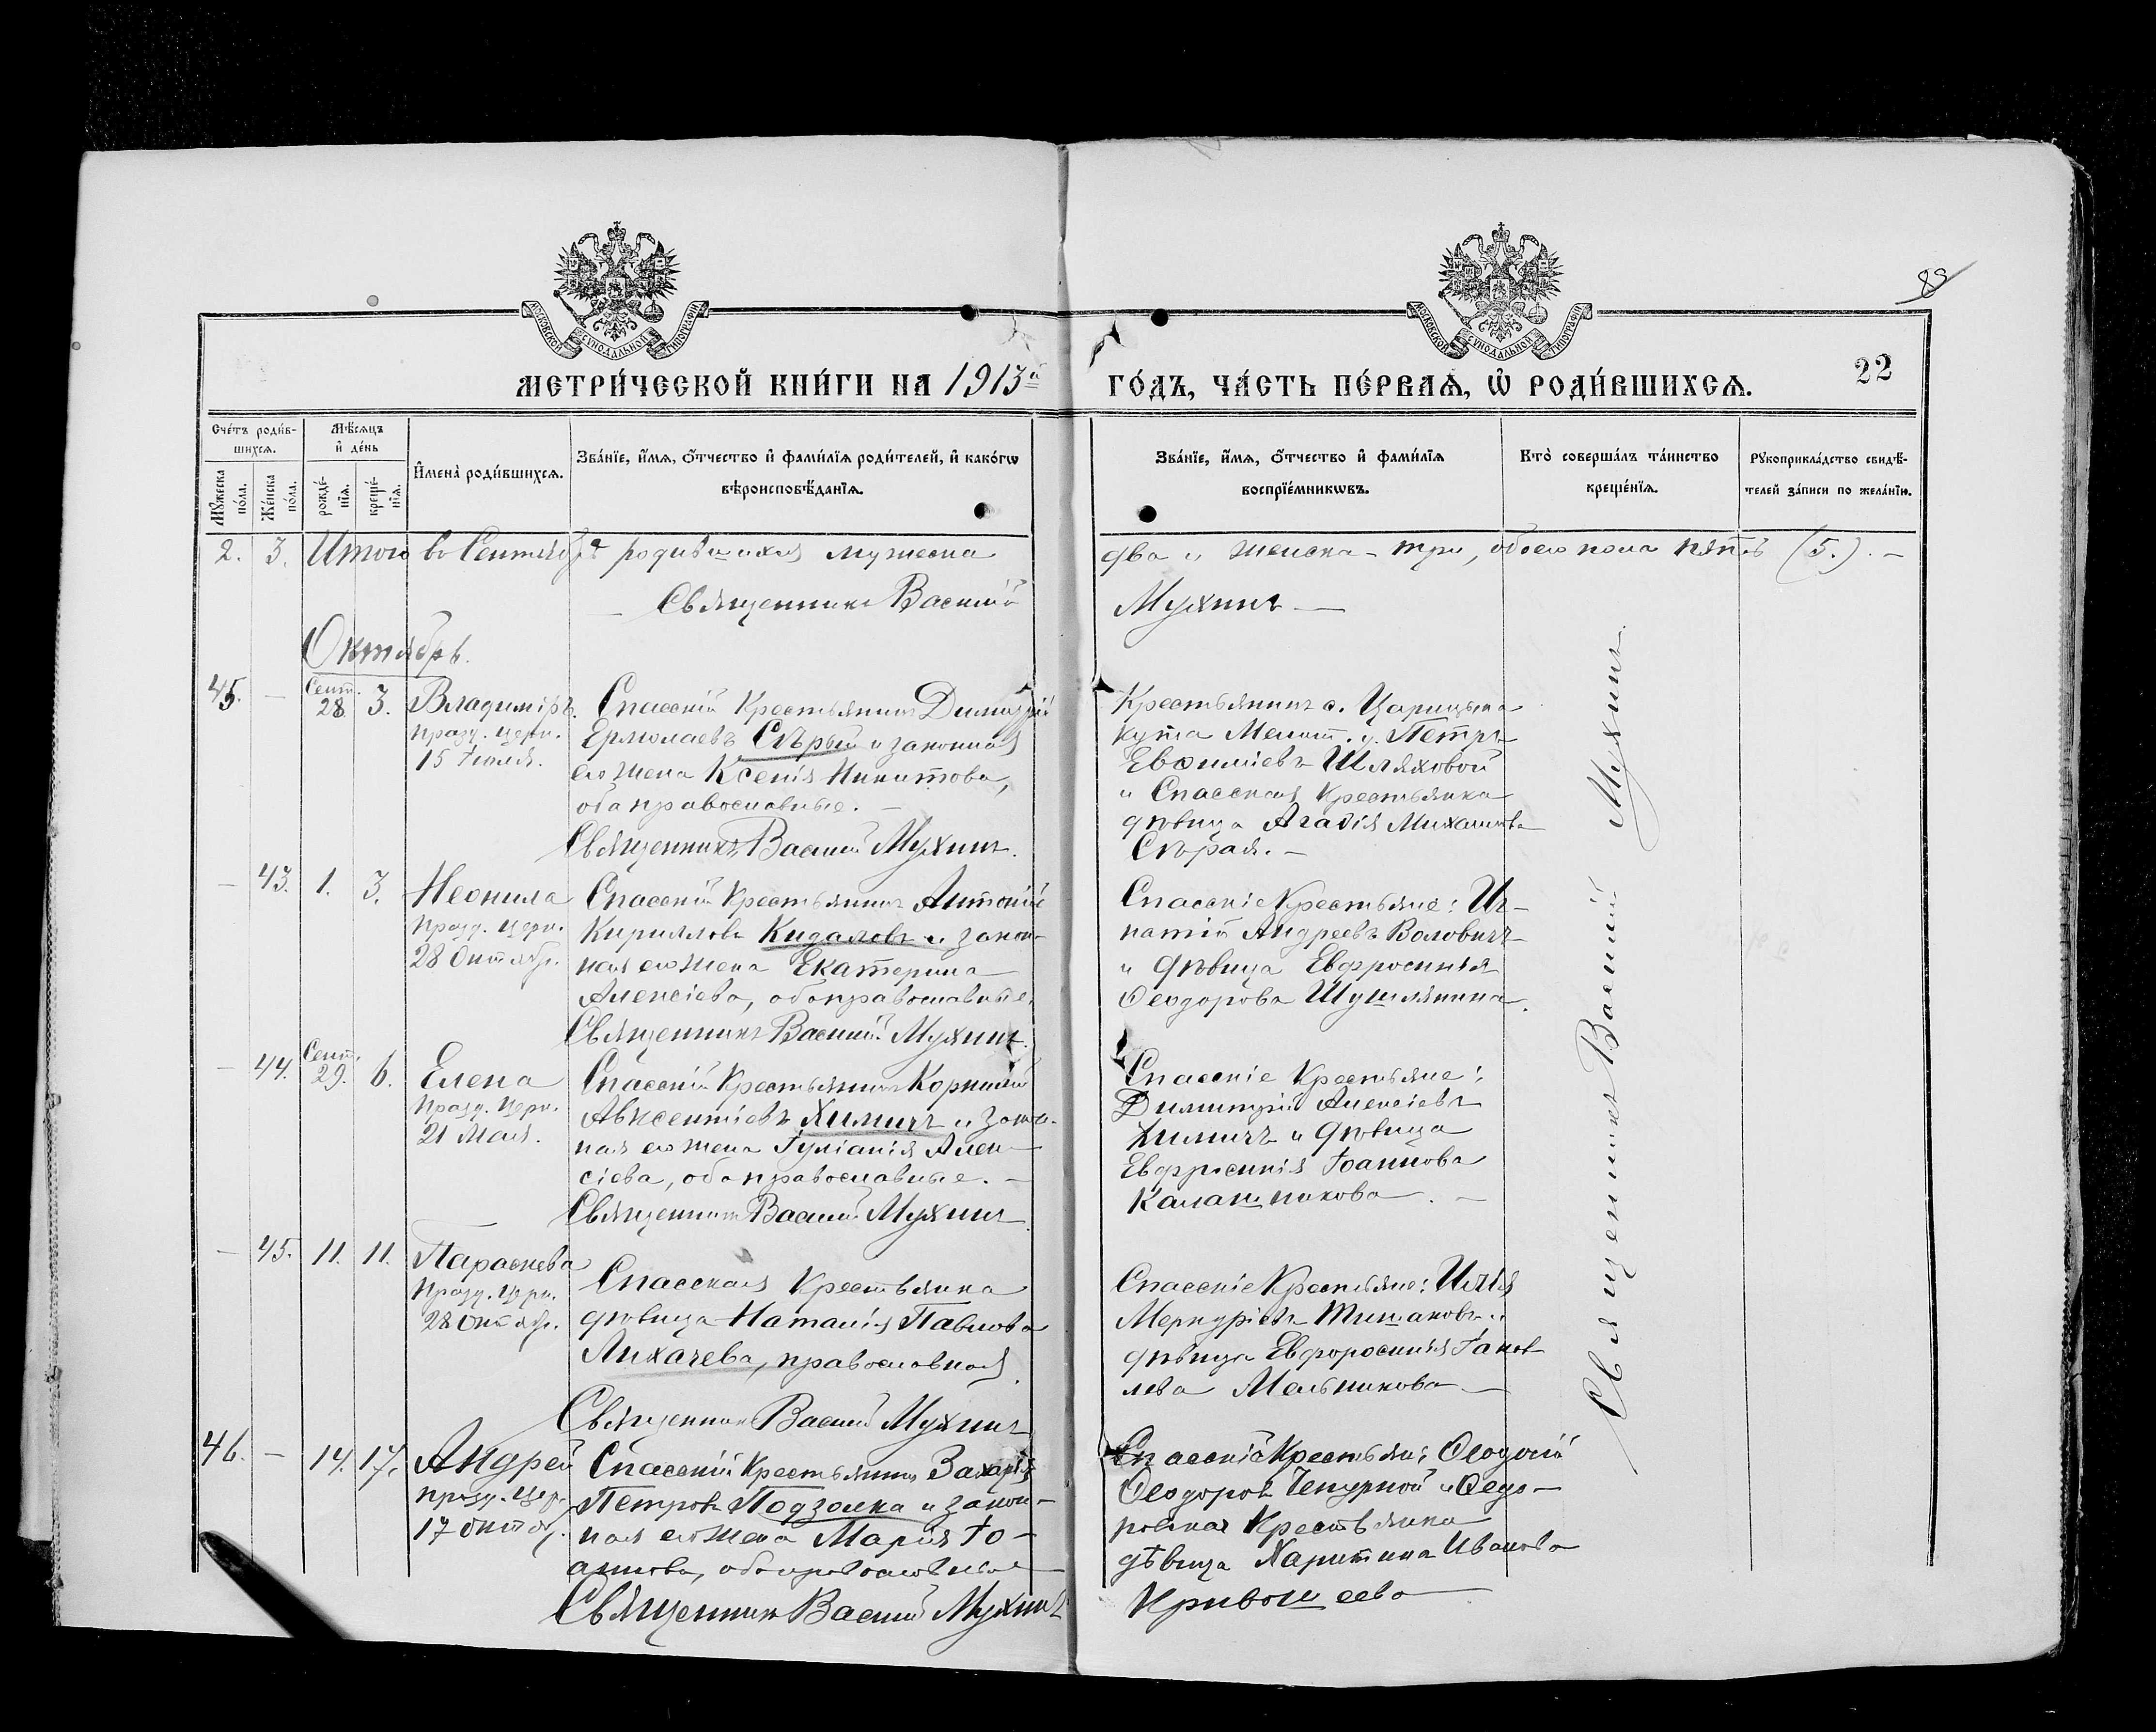 МОСКОВСКОЙ СѴНОДАЛЬНОЙ ТИПОГРАФІИ
МОСКОВСКОЙ СѴНОДАЛЬНОЙ ТИПОГРАФІИ
МЕТРИ́ЧЕСКОЙ КНИ́ГИ НА 1913й ГО́ДЪ, ЧА́СТЬ ПЕ́РВАѦ, Ѡ҆ РОДИ́ВШИХСѦ.
22
Сче́тъ роди́в-
шихсѧ.
Мꙋ́жеска по́ла.
Же́нска по́ла.
Мѣ́сѧцъ
и҆ де́нь
рожде́-
нїѧ.
креще́-
нїѧ.
И҆мена̀ роди́вшихсѧ.
Зва́нїе, и҆́мѧ, ѻ҆́тчество и҆ фами́лїѧ роди́телей, и҆ како́гѡ
вѣроисповѣ́данїѧ.
Зва́нїе, и҆́мѧ, ѻ҆́тчество и҆ фами́лїѧ
воспрїе́мникѡвъ.
Кто̀ соверша́лъ та́инство
креще́нїѧ.
Рꙋкоприкла́дство свидѣ́-
телей за́писи по жела́нїю.
2. 3. Итого въ Сентябрѣ родившихся мужеска два и женска - три, обоего пола пять (5.). -
Священникъ Василій Мухинъ
Октябрь.
45. - Сент. 28. 3. Владиміръ.
празд. церк.
15 Іюля.
Спасскій крестьянинъ Димитрій
Ермолаевъ Сѣрый и законная
его жена Ксенія Никитова,
оба православные. -
Священникъ Василій Мухинъ.
Крестьянинъ с. Царицына
кута Мелит. у. Петръ
Евѳиміевъ Шляховой
и Спасская крестьянка
дѣвица Агаѳія Михаилова
Сѣрая. -
- 43. 1. 3. Неонила
празд. церк.
28 Октябр.
Спасскій крестьянинъ Антоній
Кирилловъ Кидаловъ и закон-
ная его жена Екатерина
Алексіева, оба православные.
Священникъ Василій Мухинъ.
Спасскіе крестьяне: Иг-
натій Андреевъ Воловикъ
и дѣвица Евфросинія
Ѳеодорова Шушлянина.
- 44. Сент. 29. 6. Елена
празд. церк.
21 Мая.
Спасскій крестьянинъ Корнилій
Авксентіевъ Химичъ и закон-
ная его жена Іуліанія Алек-
сіева, оба православные. -
Священникъ Василій Мухинъ
Спасскіе крестьяне:
Димитрій Алексіевъ
Химичъ и дѣвица
Евфросинія Іоаннова
Калашникова. -
- 45. 11. 11. Параскева
празд. церк.
28 Октябр.
Спасская крестьянка
дѣвица Наталія Павлова
Лихачева, православная.
Священникъ Василій Мухинъ
Спасскіе крестьяне: Илія
Меркуріевъ Тишаковъ и
дѣвица Евфросинія Іаков-
лева Мельникова
46. - 14. 17. Андрей
празд. церк.
17 Октяб.
Спасскій крестьянинъ Захарія
Петровъ Подзолка и закон-
ная его жена Марія Іо-
аннова, оба православные
Священникъ Василій Мухинъ
Спасскій крестьян: Ѳеодосій
Ѳеодоровъ Чепурной и Ѳедо-
ровская крестьянка
дѣвица Харитина Иванова
Кривошеева
Священникъ Василій Мухинъ.